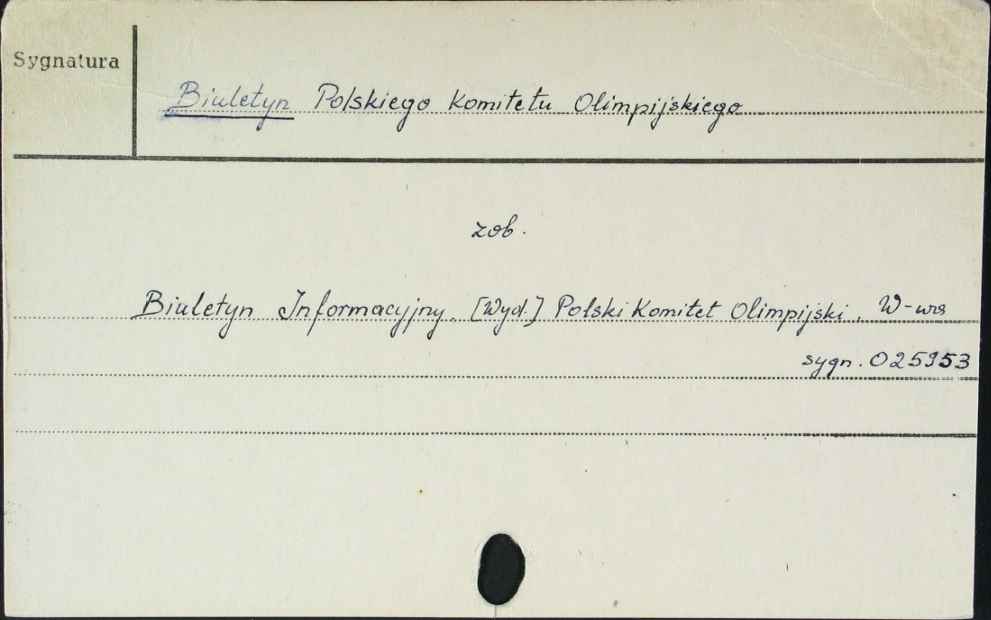 Sygnatura
Biuletyn Polskiego Komitetu Olimpijskiego
zob.
Biuletyn Informacyjny. [Wyd.] Polski Komitet Olimpijski. W-wa
sygn. 025953